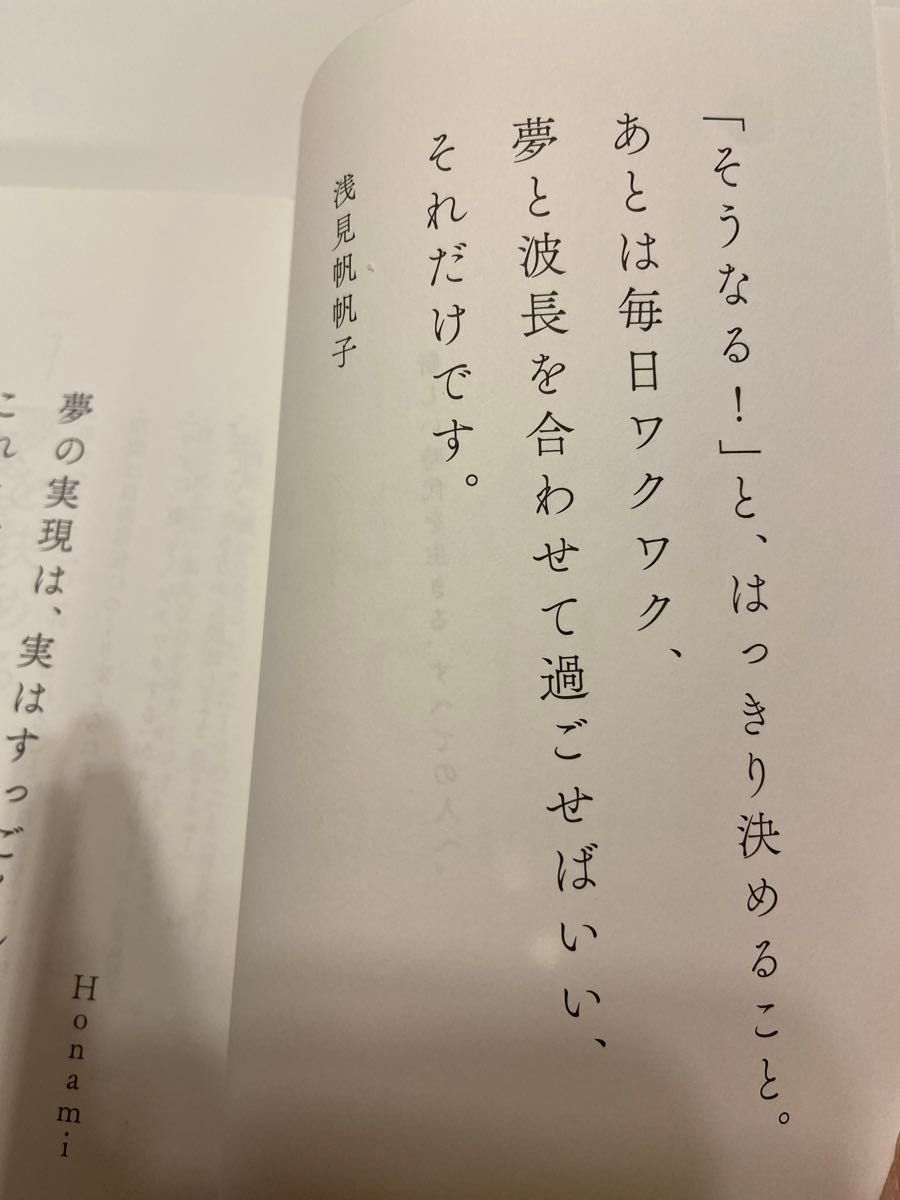 「そうなる！」と、はっきり決めること。
あとは毎日ワクワク、
夢と波長を合わせて過ごせばいい、
それだけです。
浅見帆帆子
夢の実現は、実はすっご
Honami